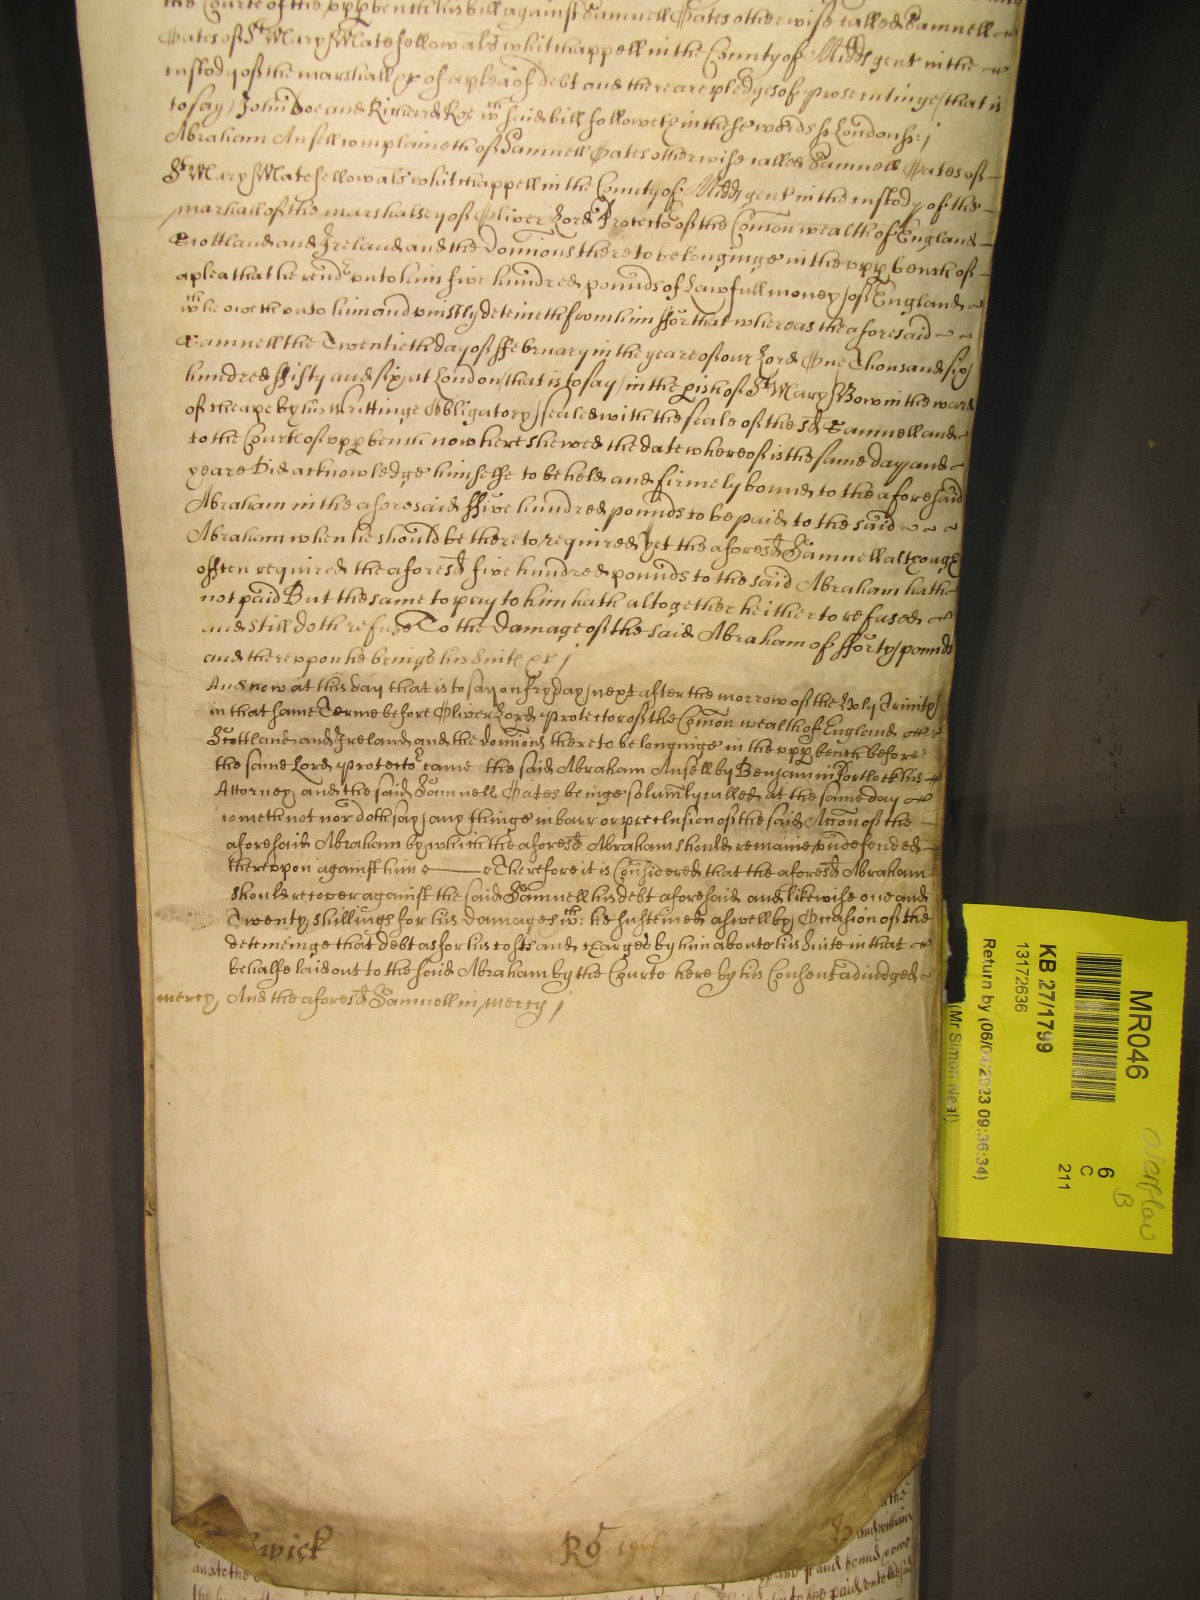 the Courte of the vpp benche his bill against Samuell Oates otherwise called Samuell
Oates of St Mary Matefellow als whitchappell in the County of Midds gent in the
custody of the marshall &c of a plea of debt and there are pledges of prosecutinge that is
to say John Doe and Richard Roe wch said bill followeth in these words ss London ss:
Abraham Ansell complaineth of Samuell Oates otherwise called Samuell Oates of
St Mary Matefellow als whitchappell in the County of Midds gent in the custody of the
marshall of the marshalsey of Oliver Lord Protector of the Comon wealth of England
Scottland and Ireland and the Dominions thereto belonginge in the vpp bench of
a plea that he rendr vnto him five hundred pounds of Lawfull money of England
wch he oweth vnto him and vniustly deteineth from him ffor that whereas the aforesaid
Samuell the Twentieth day of ffebruary in the yeare of our Lord One Thousand six
hundred ffifty and six at London that is to say in the pish of St Mary Bow in the ward
of cheape by his Writtinge Obligatory sealed with the seale of the sd Samuell and
to the Courte of vpp bench now here shewed the date whereof is the same day and
yeare Did acknowledge himselfe to be held and firmely bound to the aforesaid
Abraham in the aforesaid ffive hundred pounds to be paid to the said
Abraham when he should be thereto required yet the aforesd Samuell although
often required the aforesd five hundred pounds to the said Abraham hath
not paid But the same to pay to him hath altogether heitherto refused
and still doth refuse To the damage of the said Abraham of fforty pounds
and therevpon he brings his suite &c
And now at this day that is to say on fryday next after the morrow of the Holy Trinity
in that same Terme before Oliver Lord Protector of the Comon wealth of England &c
Scottland and Ireland and the dominions thereto belonginge in the vpp bench before
the same Lord Protector came the said Abraham Ansell by Benjamin Portlock his
Attorney and the said Samuell Oates beinge solemly called at the same day
cometh not nor doth say any thinge in barr or preclusion of the said Accon of the
aforesaid Abraham by which the aforesd Abraham should remaine vndefended
therevpon against him Therefore it is Considered that the aforesd Abraham
should recover against the said Samuell his debt aforesaid and likewise one and
Twenty shillings for his damages wch: he susteined aswell by Occasion of the
deteininge that debt as for his costs and charges by him aboute his suite in that
behalfe laid out to the said Abraham by the Courte here by his Consent adiudged
mercy And the aforesd Samuell in mercy
wick Ro
MR046
KB 27/1799
13172636
Return by (06/04/2023 09:36:34)
(Mr Simon Neal)
6
C
211
overflow
B